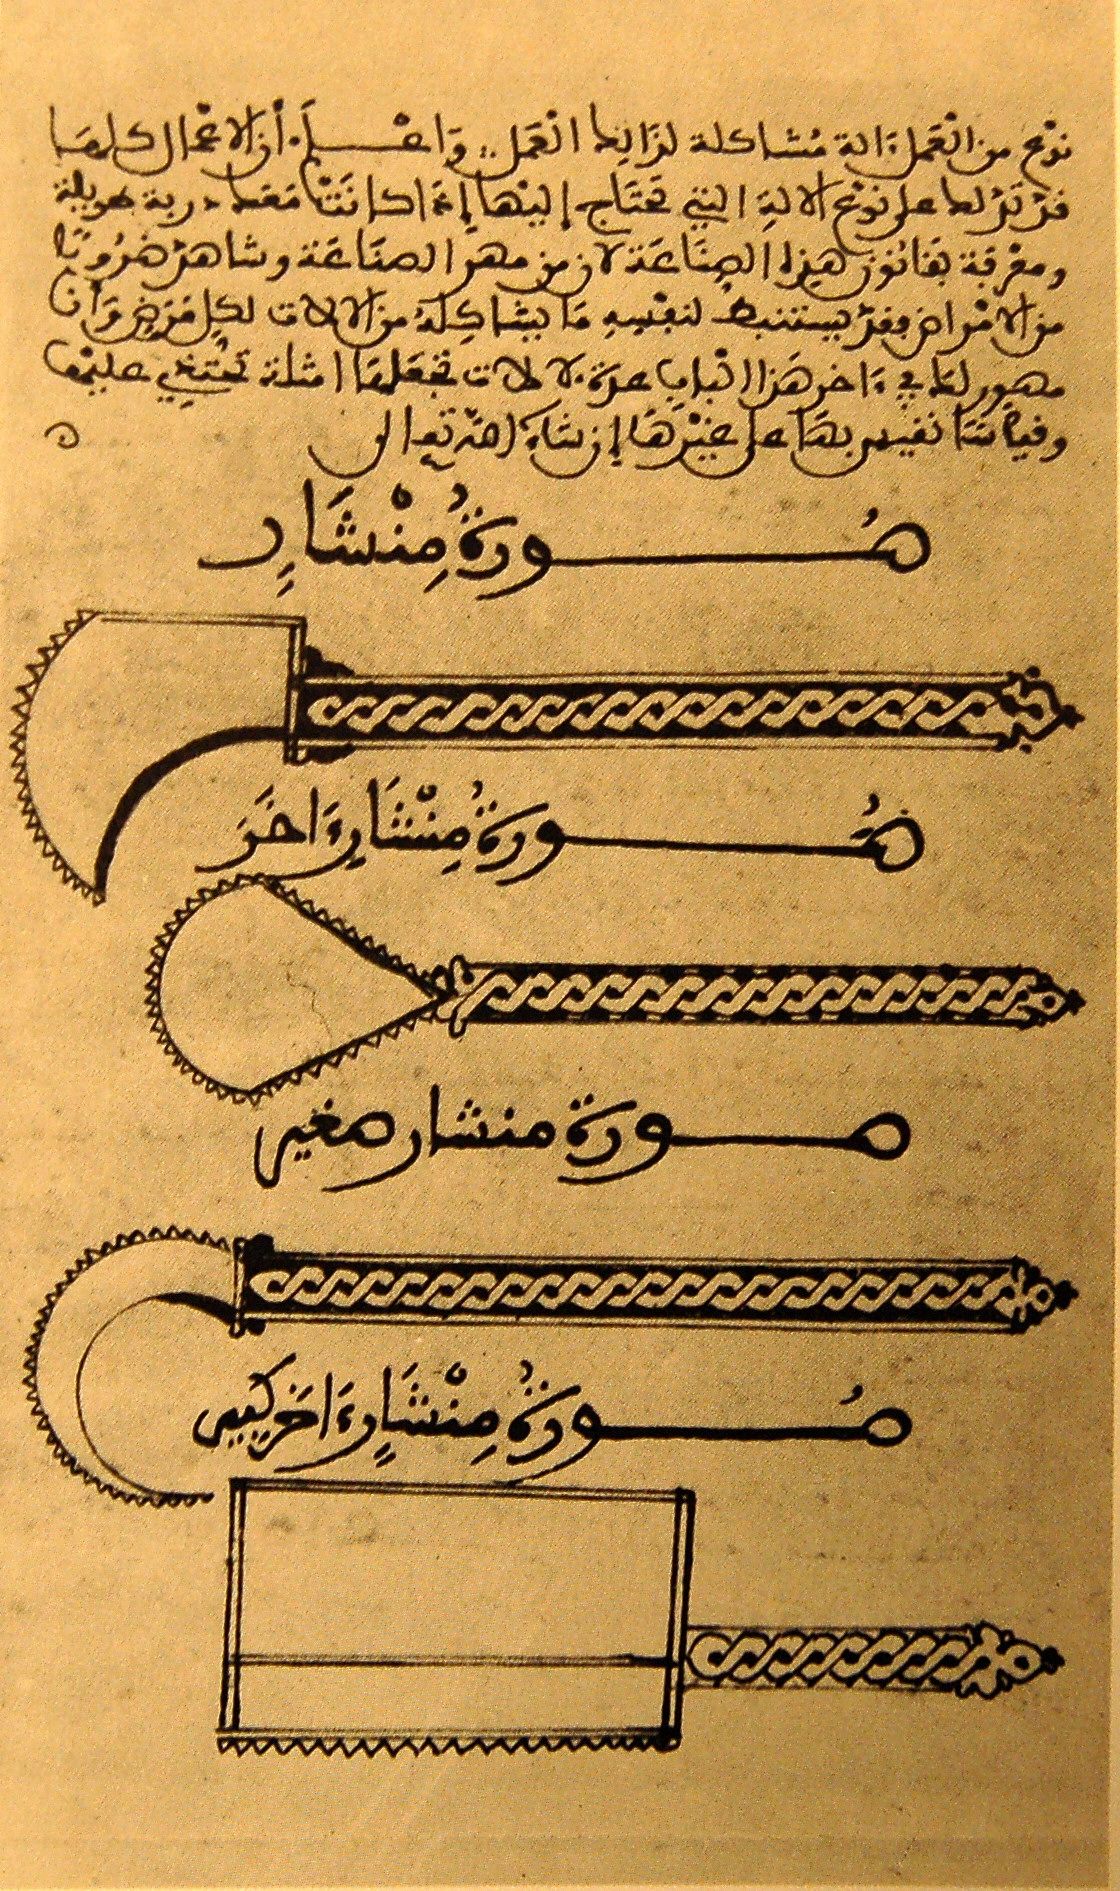 نوع من العمل ءالة مشاكلة لذالك العمل وَاعْـــلَم أن الاعمال كلها
قد تدلك على نوع الالة التي تحتاج إليها إذا كانت معك دربة طويلة
ومعرفة بقانون هذه الصناعة لان من مهر الصناعة وشاهد ضروبًا
من الامراض فقد يستنبط لنفسه ما يشاكله من الالات لكل مرض وأنا
مصور لك في ءاخر هذا الباب عدة ءالات تجعلها امثلة تحتذي عليها
وقياسًا تقيس بها على غيرها إن شاء الله تعالى
صُــــورةُ مِنْشَارٍ
صُــــورةُ مِنْشَارٍ ءَاخَرَ
صــــورة منشار صغير
صُــــورةُ مِنْشَارٍ ءَاخر كبير